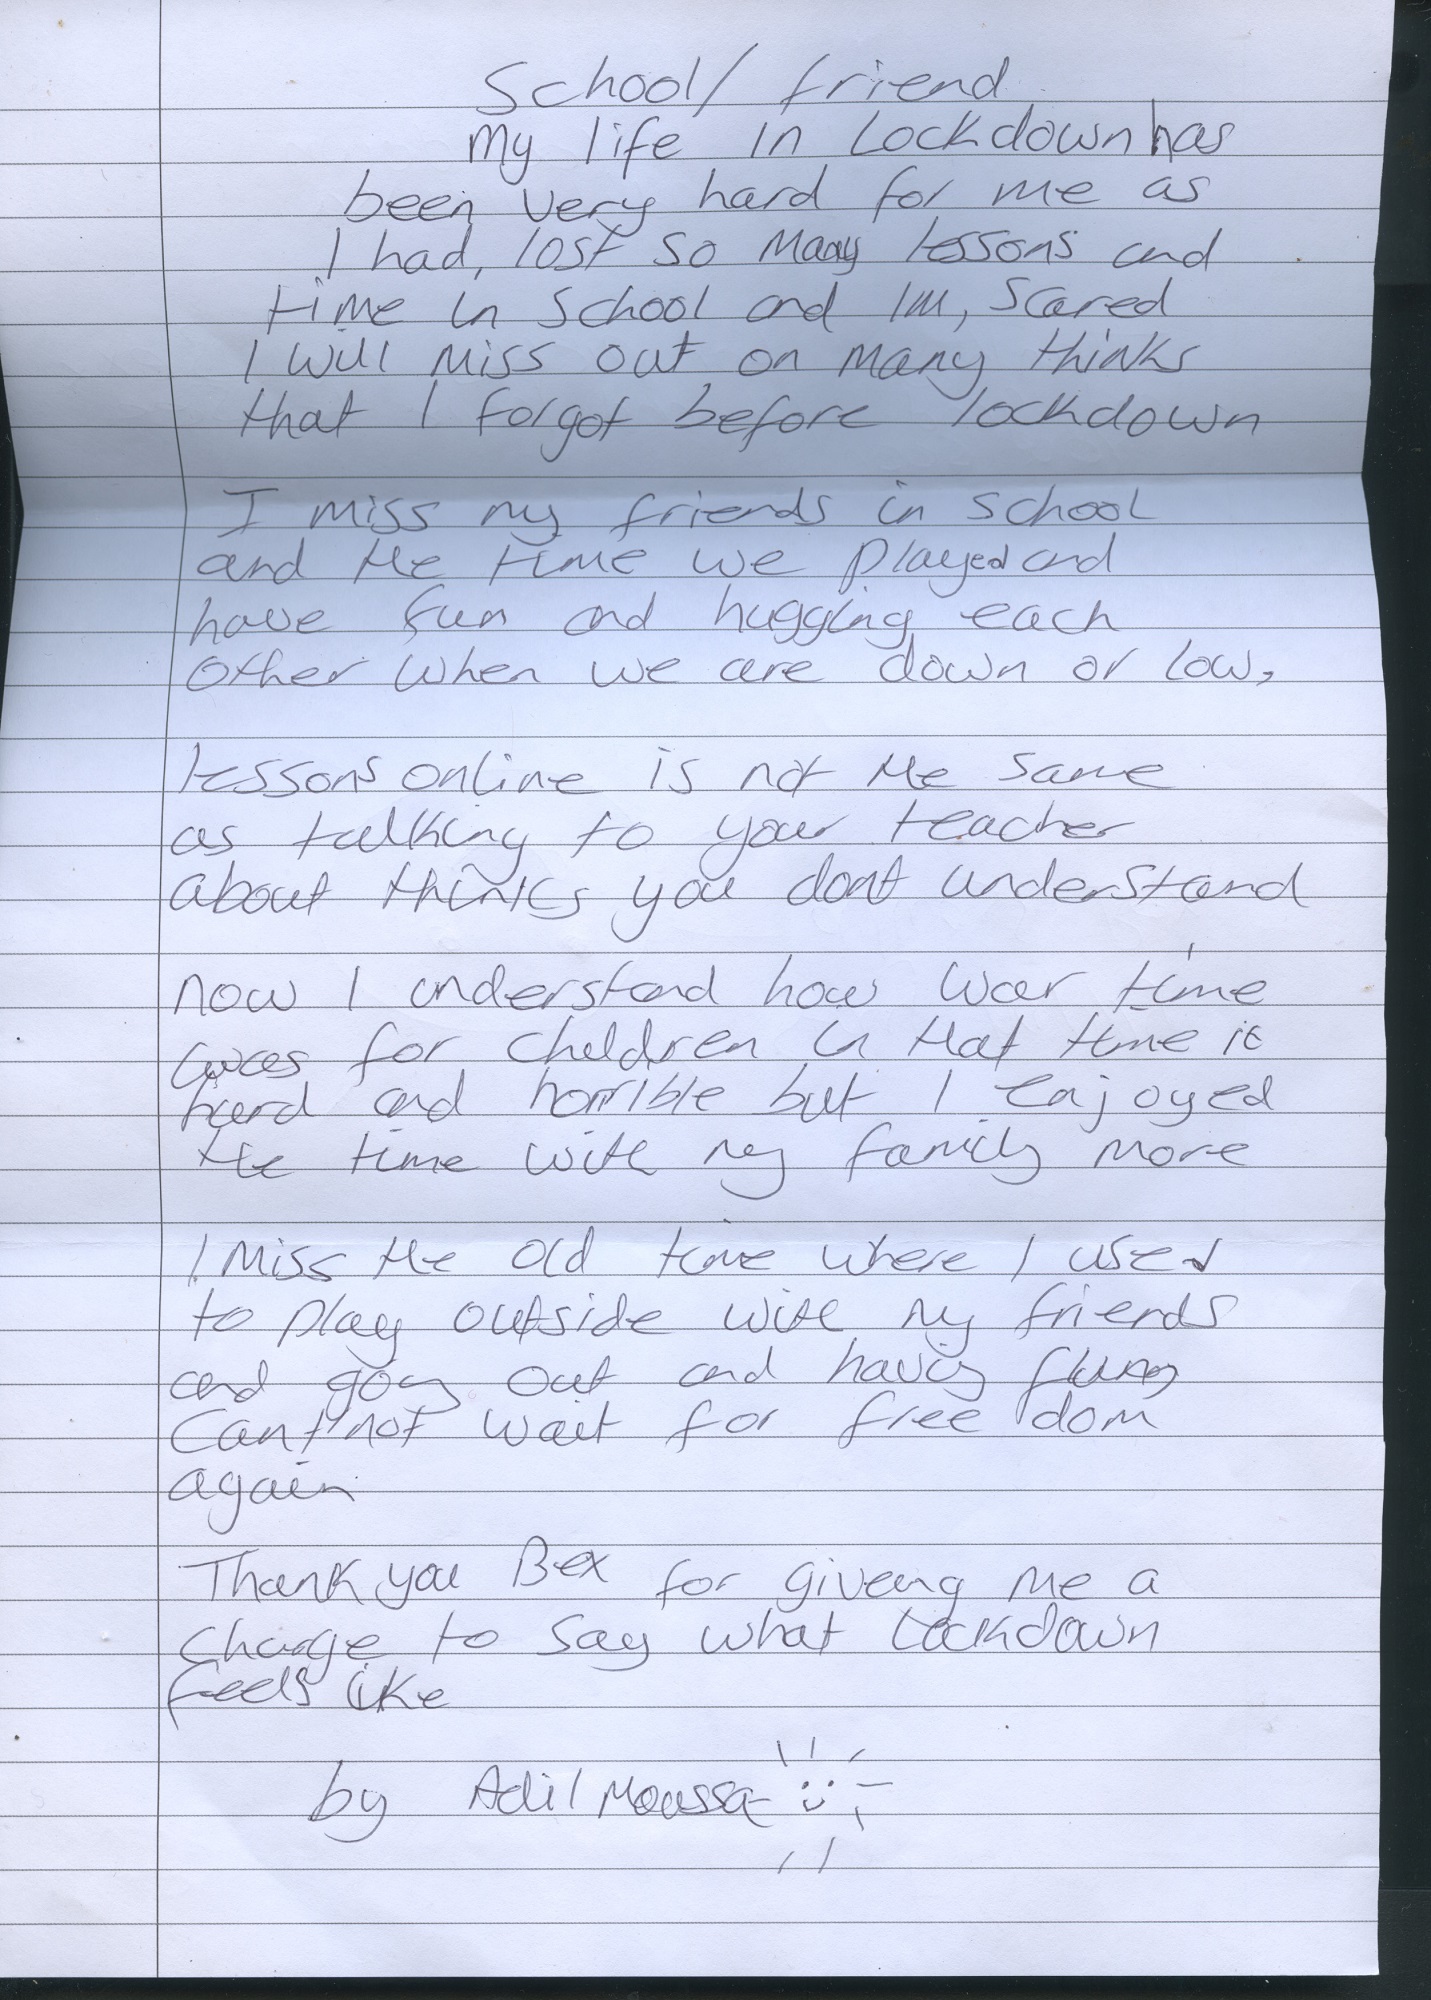 School/ friend
My life in Lockdown has
been very hard for me as
I had, lost so many lessons and
time in School and I'm, Scared
I will miss out on many thinks
that I forgot before lockdown
I miss my friends in School
and the time we played and
have fun and hugging each
other when we are down or low,
lessons online is not the same
as talking to your teacher
about thinks you dont understand
now I understand how war time
was for children in that time it
hard and horrible but I enjoyed
the time with my family more
I miss the old time where I used
to play outside with my friends
and going out and having
Cant not wait for free dom
again
Thank you Bex for giveing me a
to say what Lockdown
feels like
by Adil Moussa